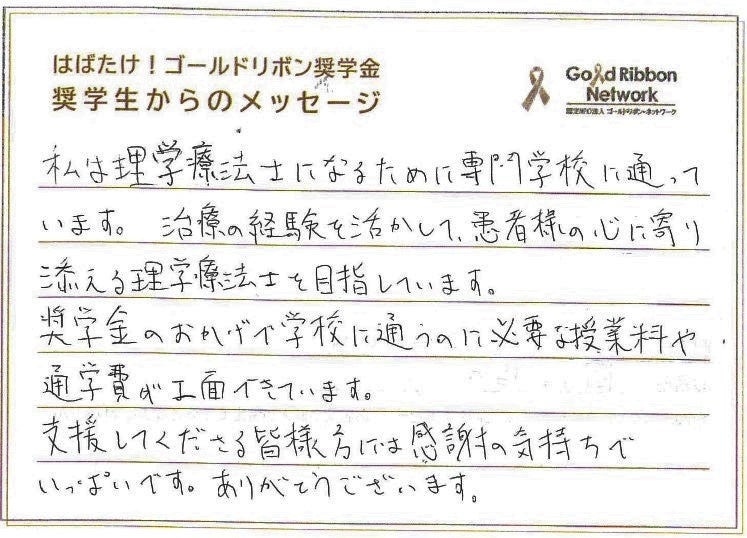 はばたけ！ゴールドリボン奨学金
奨学生からのメッセージ
Gold Ribbon
Network
認定NPO法人 ゴールドリボン・ネットワーク
私は理学療法士になるために専門学校に通って
います。治療の経験を活かして、患者様の心に寄り
添える理学療法士を目指しています。
奨学金のおかげで学校に通うのに必要な授業料や
通学費が工面できています。
支援してくださる皆様方には感謝の気持ちで
いっぱいです。ありがとうございます。